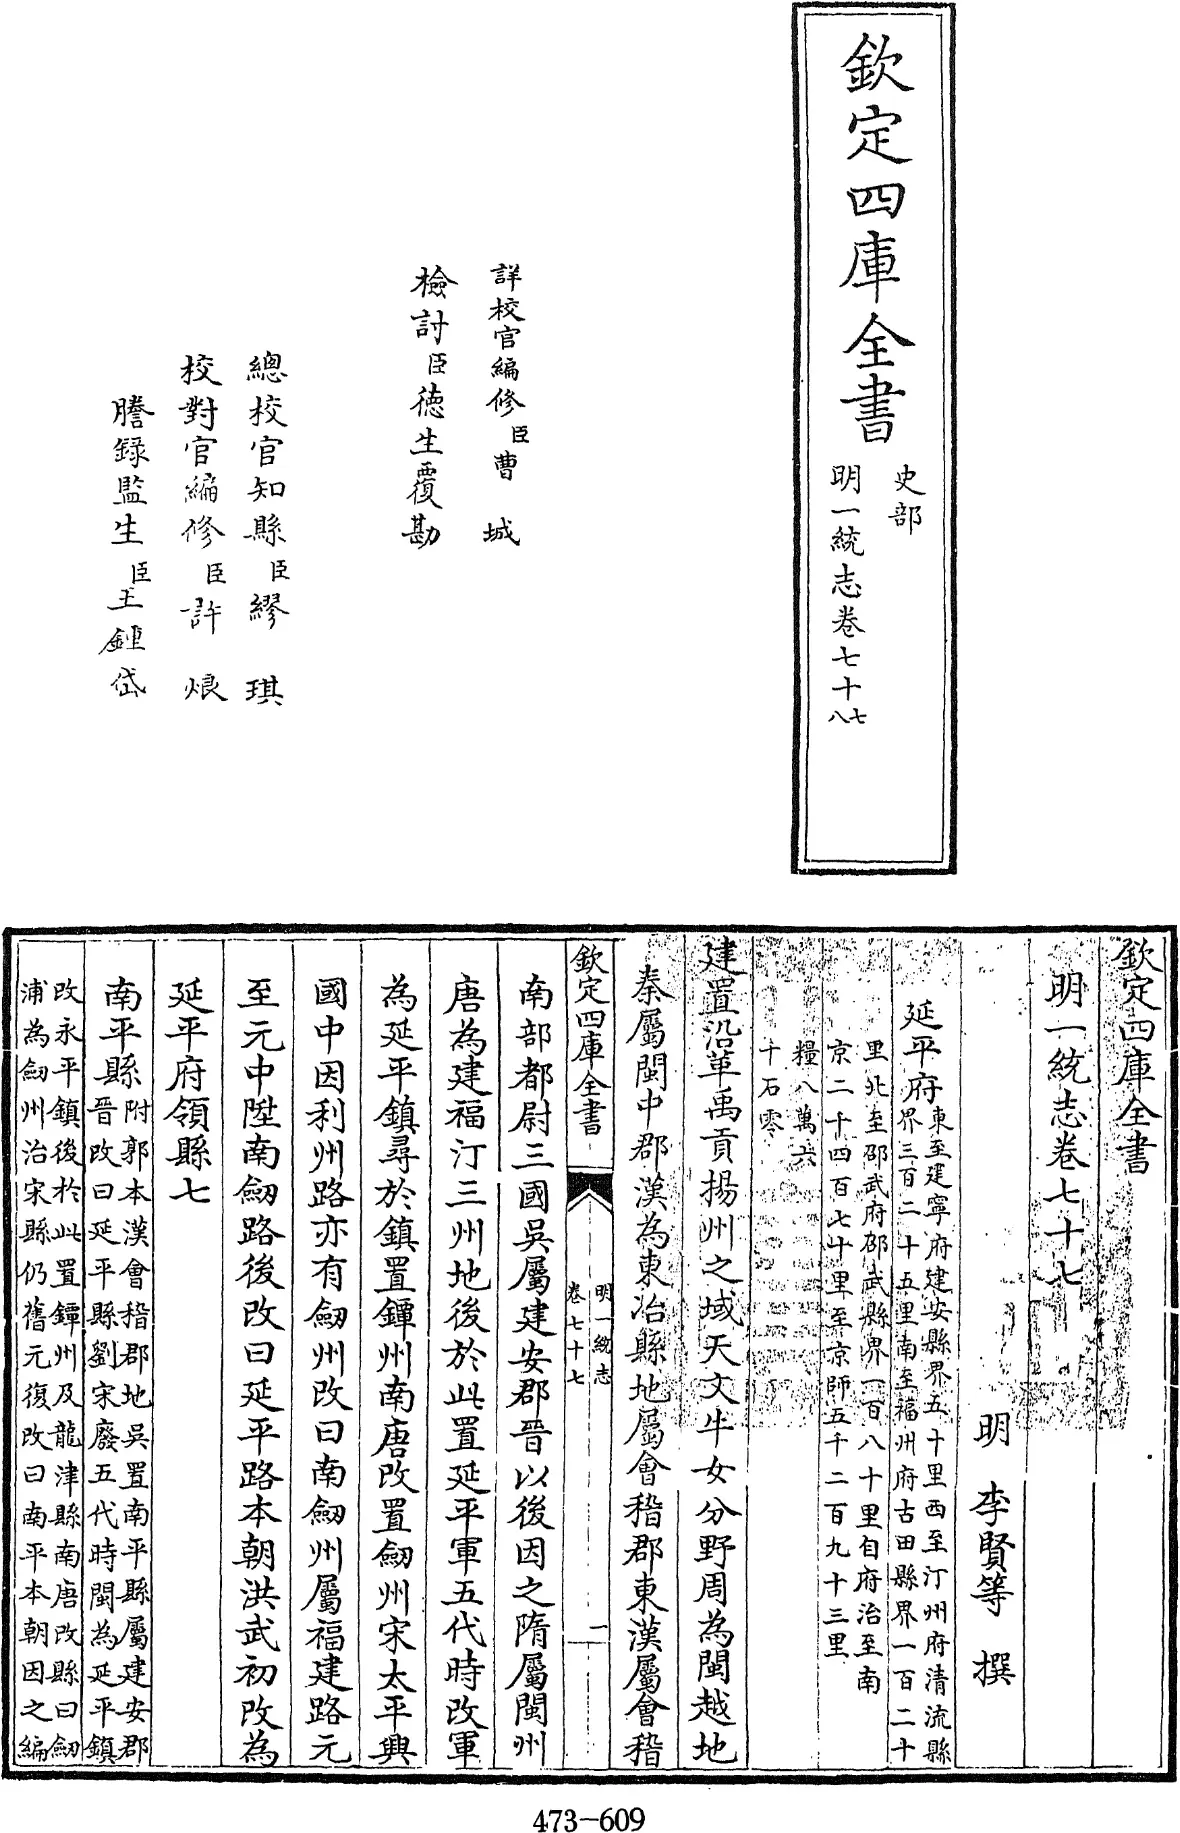 欽定四庫全書
史部
明一統志卷七十七
八
詳校官編修臣曹城
檢討臣德生覆勘
總校官知縣臣繆琪
校對官編修臣許烺
謄錄監生臣王鍾岱
欽定四庫全書
明一統志卷七十七
明 李賢等 撰
延平府東至建寧府建安縣界五十里西至汀州府清流縣
界三百二十五里南至福州府古田縣界一百二十
里北至邵武府邵武縣界一百八十里自府治至南
京二十四百七十里至京師五千二百九十三里
糧八萬六
千石零
建置沿革禹貢揚州之域天文牛女分野周為閩越地
秦屬閩中郡漢為東冶縣地屬會稽郡東漢屬會稽
欽定四庫全書
明一統志
卷七十七
一
南部都尉三國吳屬建安郡晉以後因之隋屬閩州
唐為建福汀三州地後於此置延平軍五代時改軍
為延平鎮尋於鎮置鐔州南唐改置劒州宋太平興
國中因利州路亦有劒州改曰南劒州屬福建路元
至元中陞南劒路後改曰延平路本朝洪武初改為
延平府領縣七
南平縣附郭本漢會稽郡地吳置南平縣屬建安郡
晉改曰延平縣劉宋廢五代時閩為延平鎮
改永平鎮後於此置鐔州及龍津縣南唐改縣曰劒
浦為劒州治宋縣仍舊元復改曰南平本朝因之編
473-609